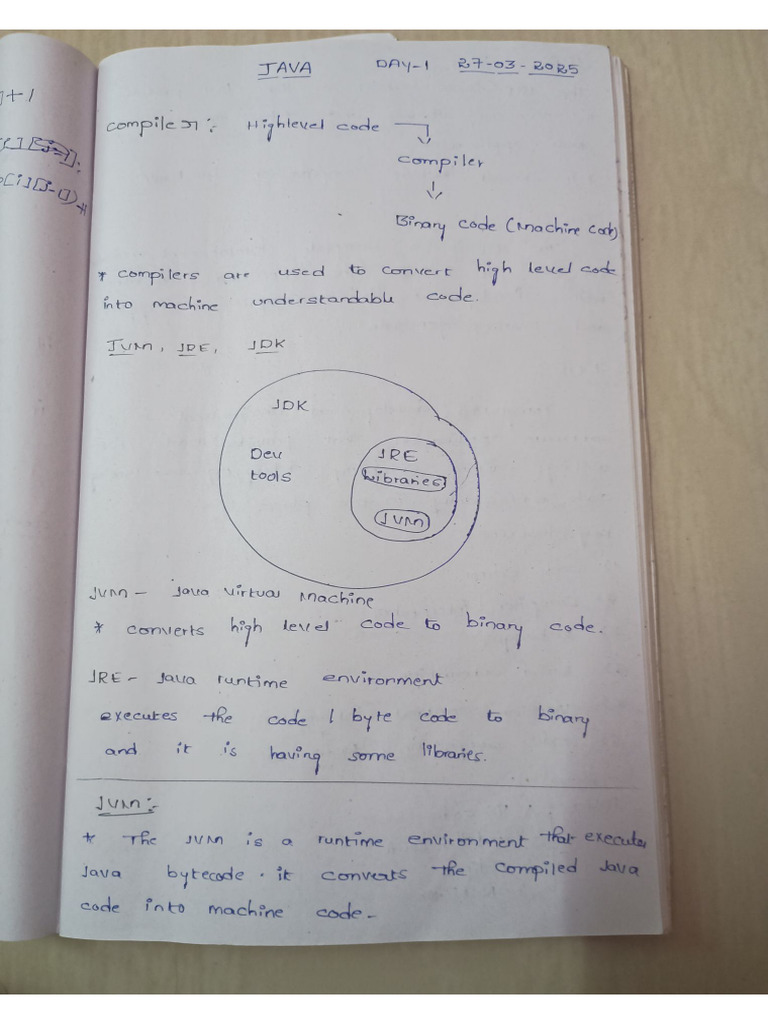 JAVA DAY-1 27-03-2025
compiler:- Highlevel code
compiler
Binary code (Machine code)
* compilers are used to convert high level code
into machine understandable code.
JVM, JDE, JDK
JDK
Dev
tools
JRE
Libraries
JVM
JVM - Java Virtual Machine
* converts high level code to binary code.
JRE - Java runtime environment
executes the code / byte code to binary
and it is having some libraries.
JVM:-
* The JVM is a runtime environment that executes
Java bytecode. it converts the compiled Java
code into machine code.